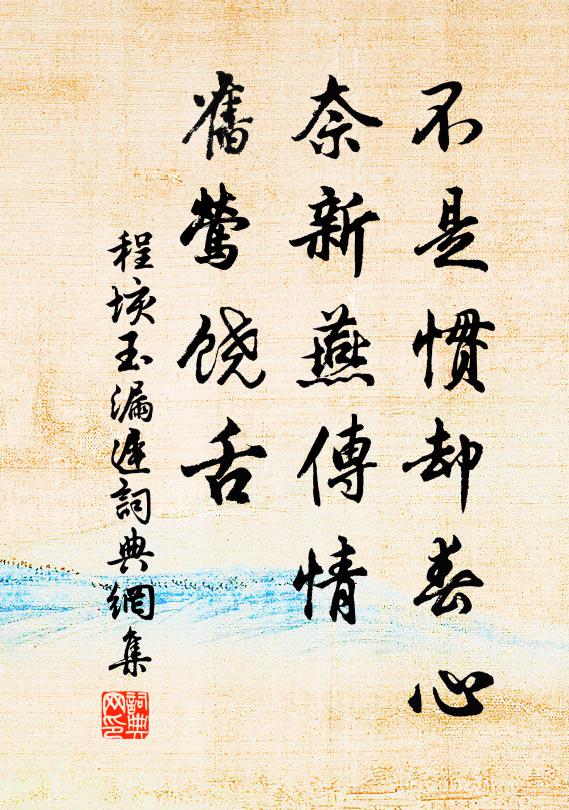 不是惯却春心
奈新燕傳情
舊莺饶舌
程垓玉漏遲詞典網集
詞典网印